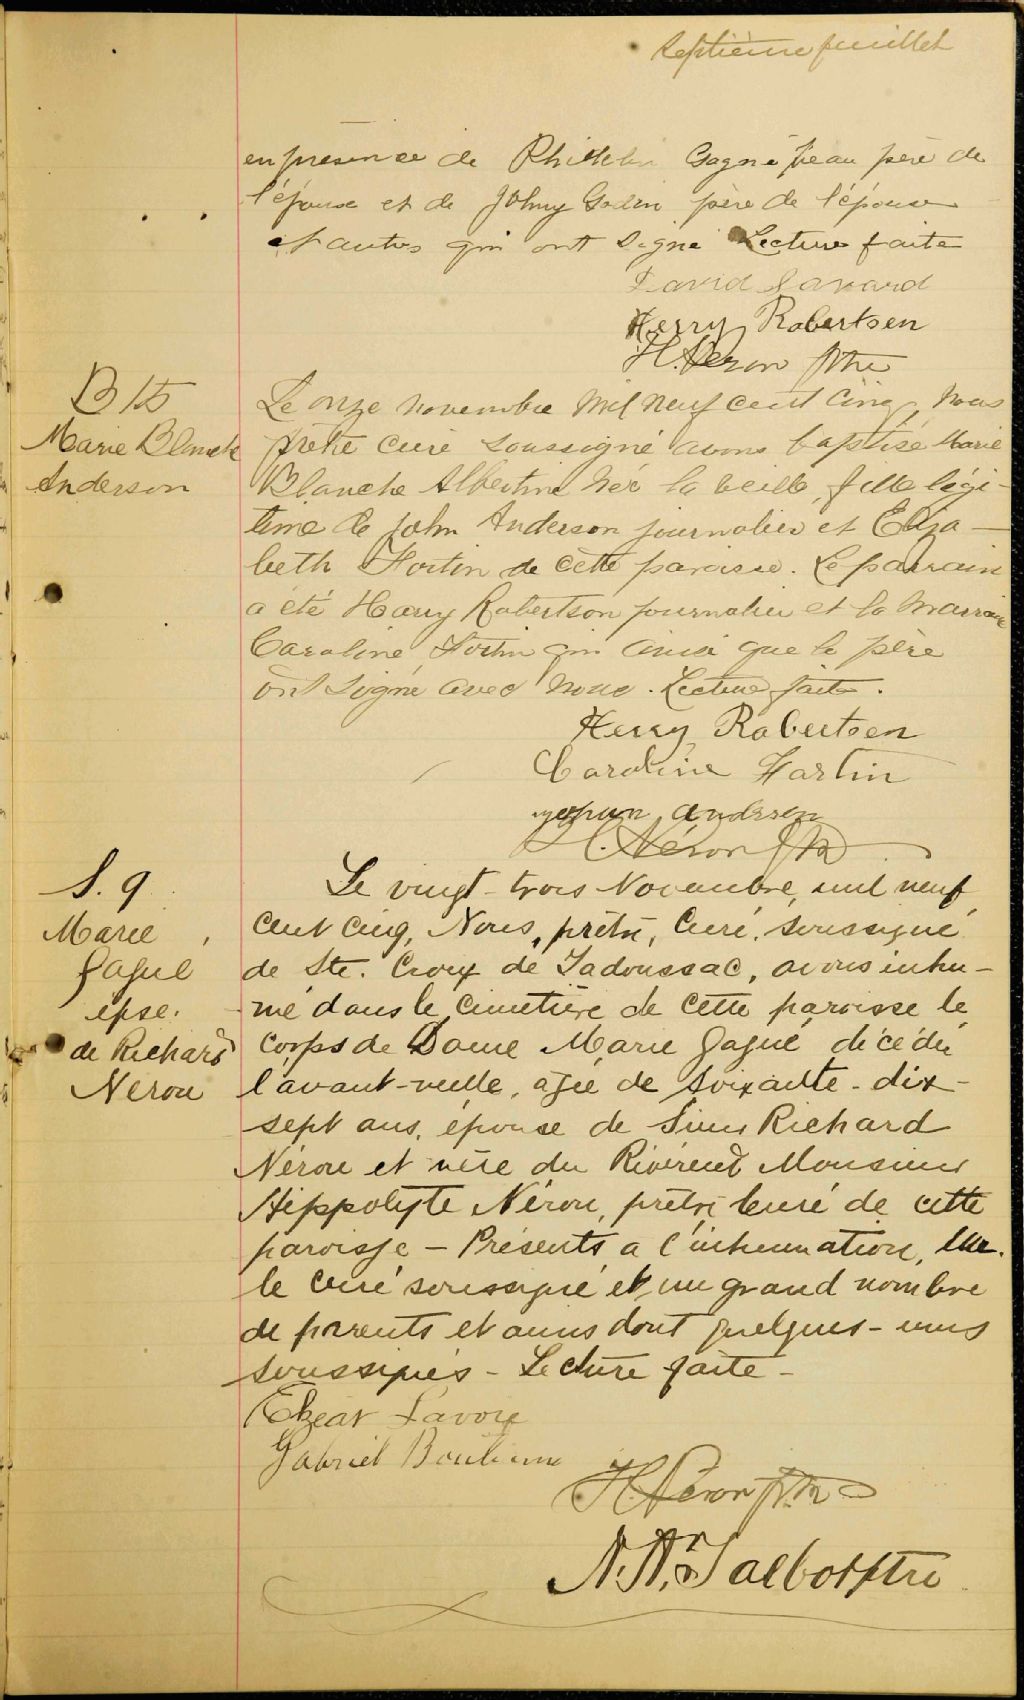 Septième feuillet
en présence de Gagné beau père de
l'épouse et de Johny Godin père de l'épouse
et autres qui ont signé Lecture faite
David Savard
Herry Robertsen
H. Néron ptre
B 15
Marie Blanche
Anderson
Le onze novembre mil neuf cent cinq, nous
prêtre curé soussigné avons baptisé Marie
Blanche Albertine née la veille, fille légi-
time de John Anderson journalier et Eliza-
beth Fortin de cette paroisse. Le parrain
a été Harry Robertson journalier et la marraine
Caroline Fortin qui ainsi que le père
ont signé avec nous. Lecture faite.
Herry Robertsen
Caroline Fortin
andersen
H. Néron Ptr
S. 9
Marie
Gagné
épse.
de Richard
Néron
Le vingt-trois Novembre, mil neuf
cent cinq, Nous, prêtre, Curé, soussigné
de Ste. Croix de Tadoussac, avons inhu-
mé dans le cimetière de cette paroisse le
corps de Dame Marie Gagné, décédée
l'avant-veille, agée de soixante-dix-
sept ans, épouse de Sieur Richard
Néron et mère du Révérend Monsieur
Hippolyte Néron, prêtre curé de cette
paroisse – Présents a l'inhumation, Mr.
le curé soussigné et un grand nombre
de parents et amis dont quelques-uns
soussignés – Lecture faite –
Elzear Lavoie
Gabriel Boulianne
H. Néron Ptr
N. A. Talbot Ptre